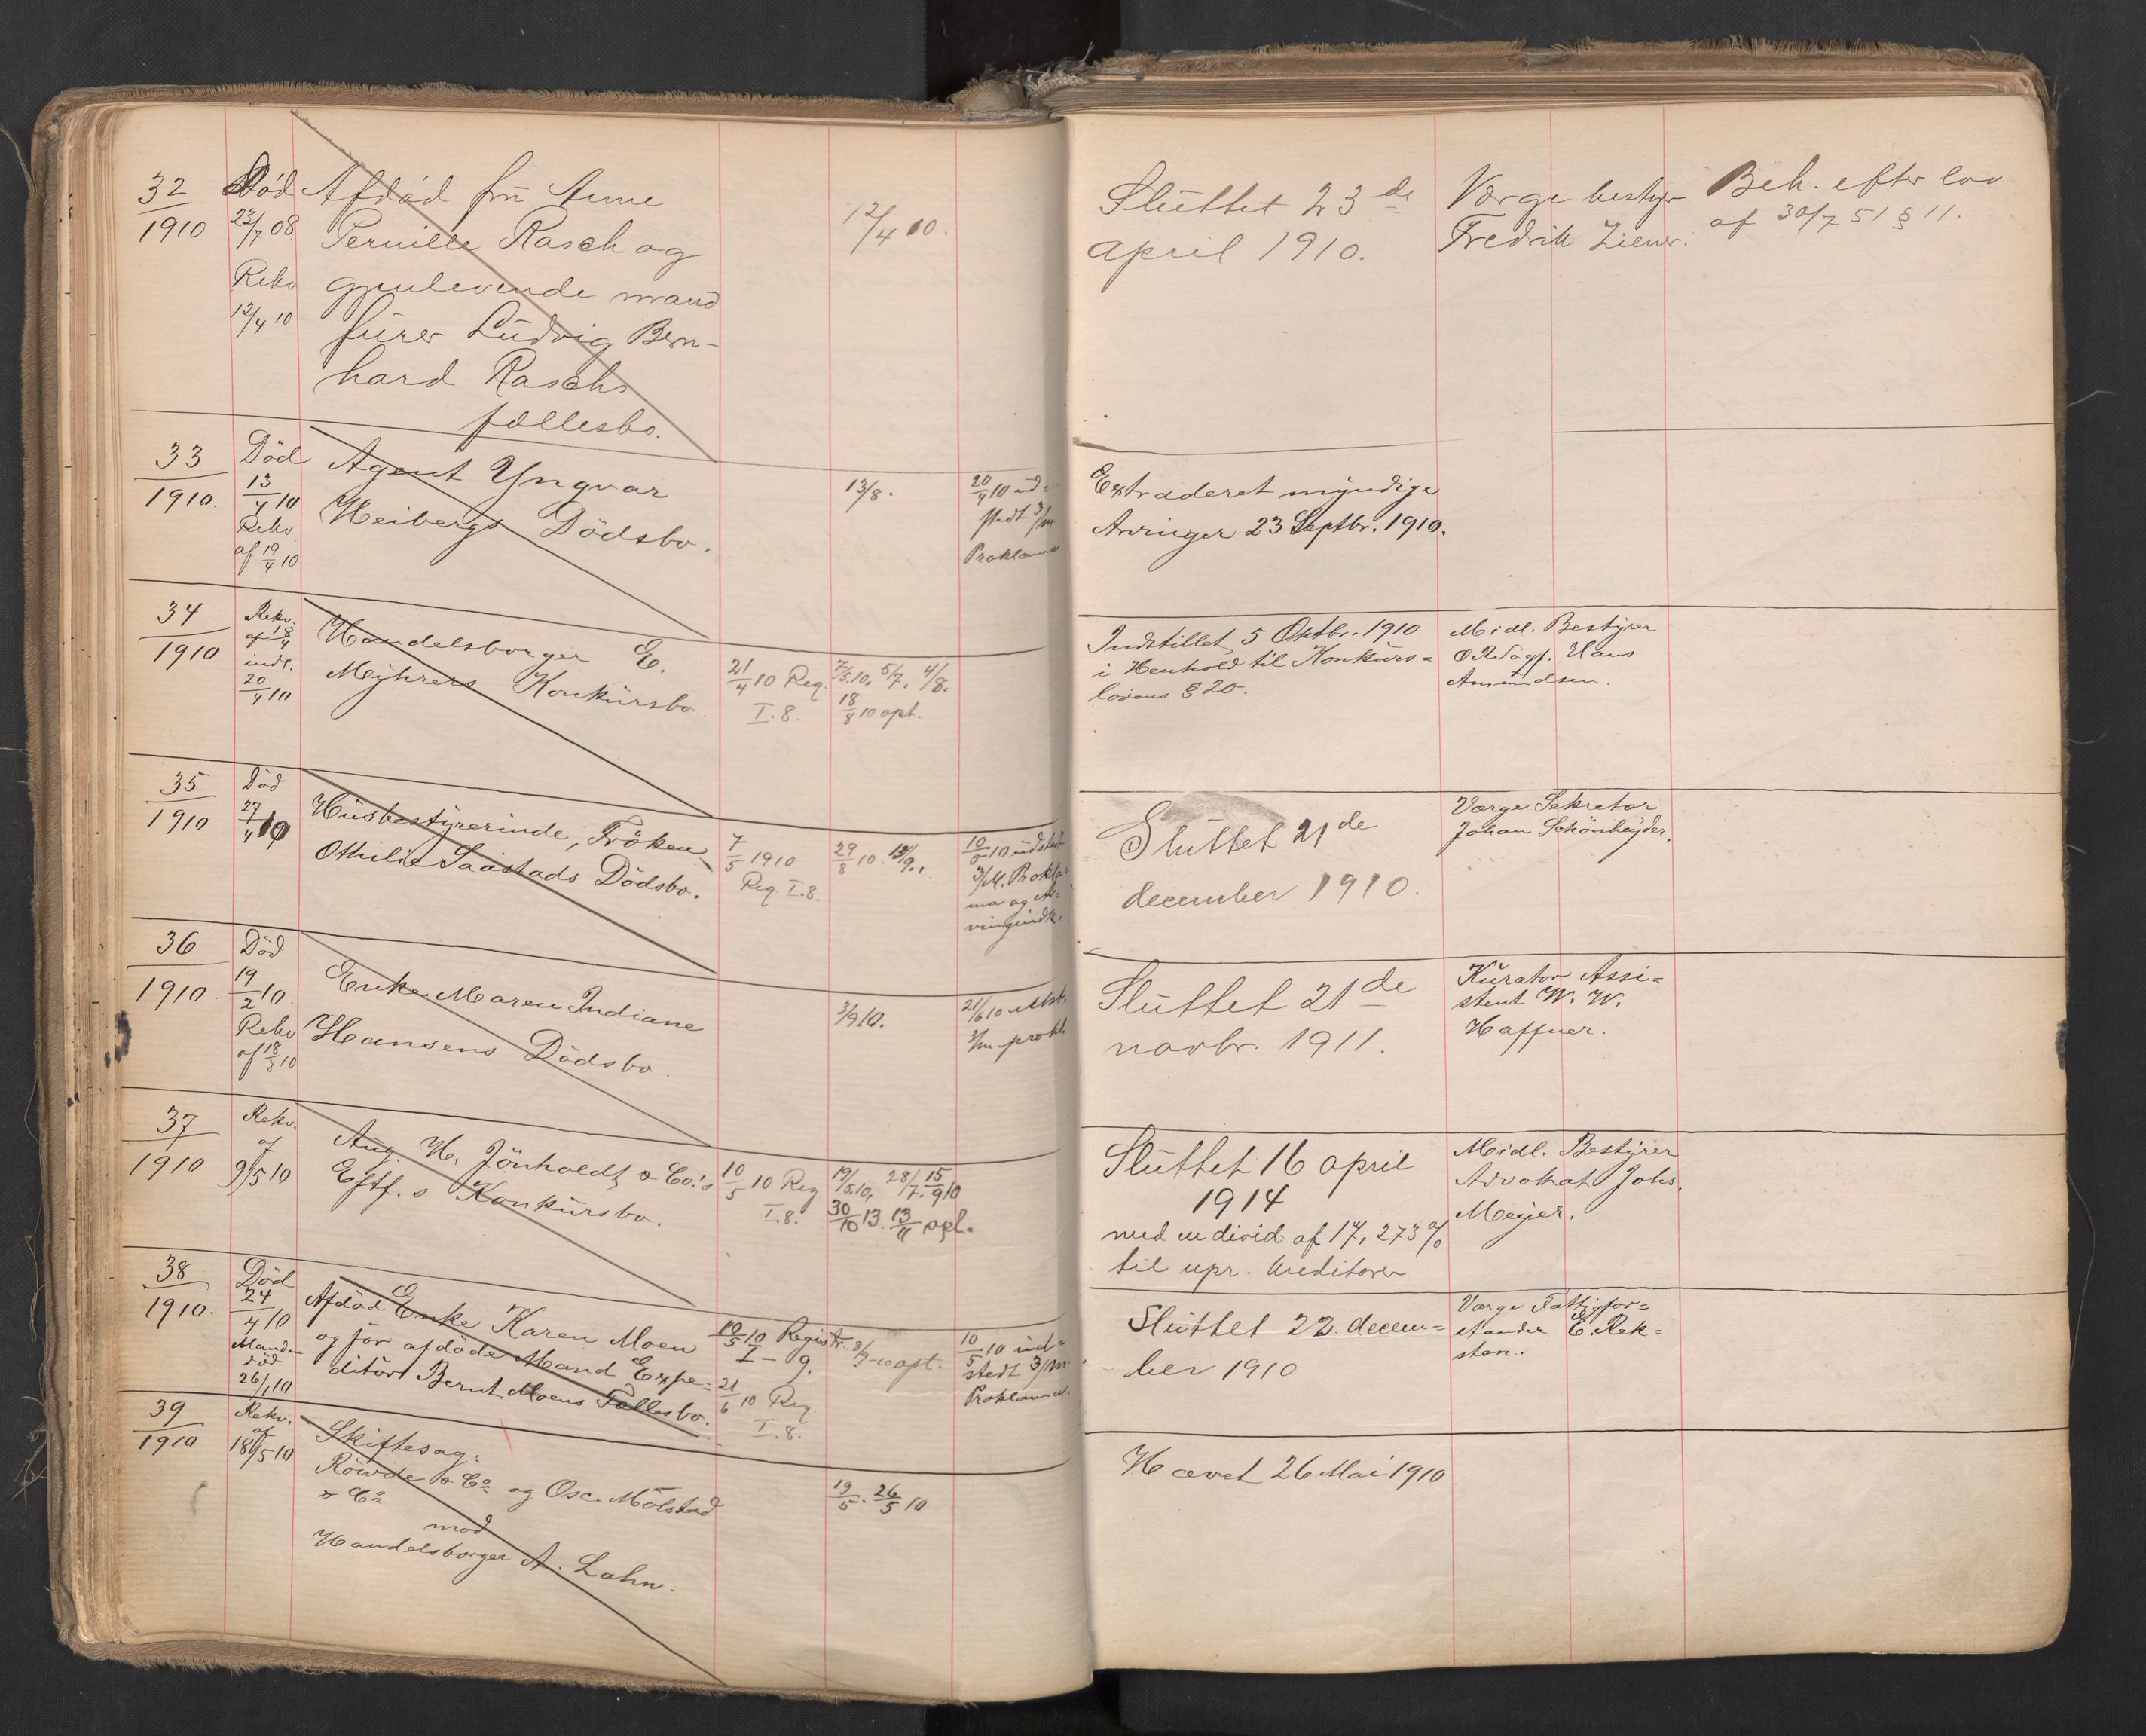 32
1910
Död
23/7 08.
Rekv
12/4 10
Afdöd fru Anne
Pernille Rasch og
gjenlevende mand
furer Ludvig Bern-
hard Raschs
fællesbo.
12/4 10.
Sluttet 23de
april 1910.
Værge bestyr
Fredrik Ziener.
Beh. efter lov
af 30/7 51 § 11.
33
1910.
Död
13/4 10
Rekv
af 19/4 10
Agent Yngvar
Heibergs Dödsbo.
13/8.
20/4 10 ud=
stedt 3/m
Proklama
Extraderet myndige
Arvinger 23 Septbr. 1910.
34
1910
Rekv.
af 18/4
indl.
20/4 10
Handelsborger E.
Meyhrers Konkursbo
21/4 10 Reg.
I. 8.
7/5.10, 5/7. 4/8.
18/8 10 opt.
Indstillet 5 Oktbr. 1910
i Henhold til Konkurs=
lovens § 20.
Midl. Bestyrer
O.R.Sagf. Hans
Amundsen.
35
1910
Död
27/4 10
Husbestyrerinde, Fröken
Othilie Saastads Dödsbo.
7/5 1910
Reg. I. 8.
29/8 10. 13/9.,
10/5 10 udstedt
3/M. Prokla=
ma og Ar=
vingindk.
Sluttet 21de
december 1910.
Værge Sekretær
Johan Schönheyder.
36
1910.
Död
19/2 10.
Rekv
af 18/3 10
Enke Maren Indiane
Hansens Dödsbo.
3/9 10.
21/6 10 utst.
3/m prokl.
Sluttet 21de
novbr. 1911.
Kurator Assi=
stent W. W.
Haffner.
37
1910
Rekv.
af
9/5 10
Aug. H. Jönholdt & Co.'s
Eftf. s Konkursbo.
10/5 10 Reg
I. 8.
19/5.10, 28/7. 15/9 10
30/10 13. 13/11 opl.
Sluttet 16 april
1914
med en divid af 17,273 %
til upr. kreditorer
Midl. Bestyrer
Advokat Johs.
Meyer.
38
1910.
Död
24/4 10
Manden
död
26/1 10
Afdöd Enke Karen Moen
og för afdöde Mand Expe=
ditör Bernt Moens Fællesbo.
10/5 10 Registr.
I - 9.
21/6 10 Reg
I. 8.
8/9 - 10 opt.
10/5 10 ud=
stedt 3/m.
Proklama.
Sluttet 22. decem=
ber 1910
Værge Fattigfor=
stander E. Rek=
sten.
39
1910
Rekv.
af
18/5 10
Skiftesag:
Röwde & Co og Osc. Mölstad
& Co
mod
Handelsborger A. Lahn.
19/5. 26/5 10
Hævet 26 Mai 1910